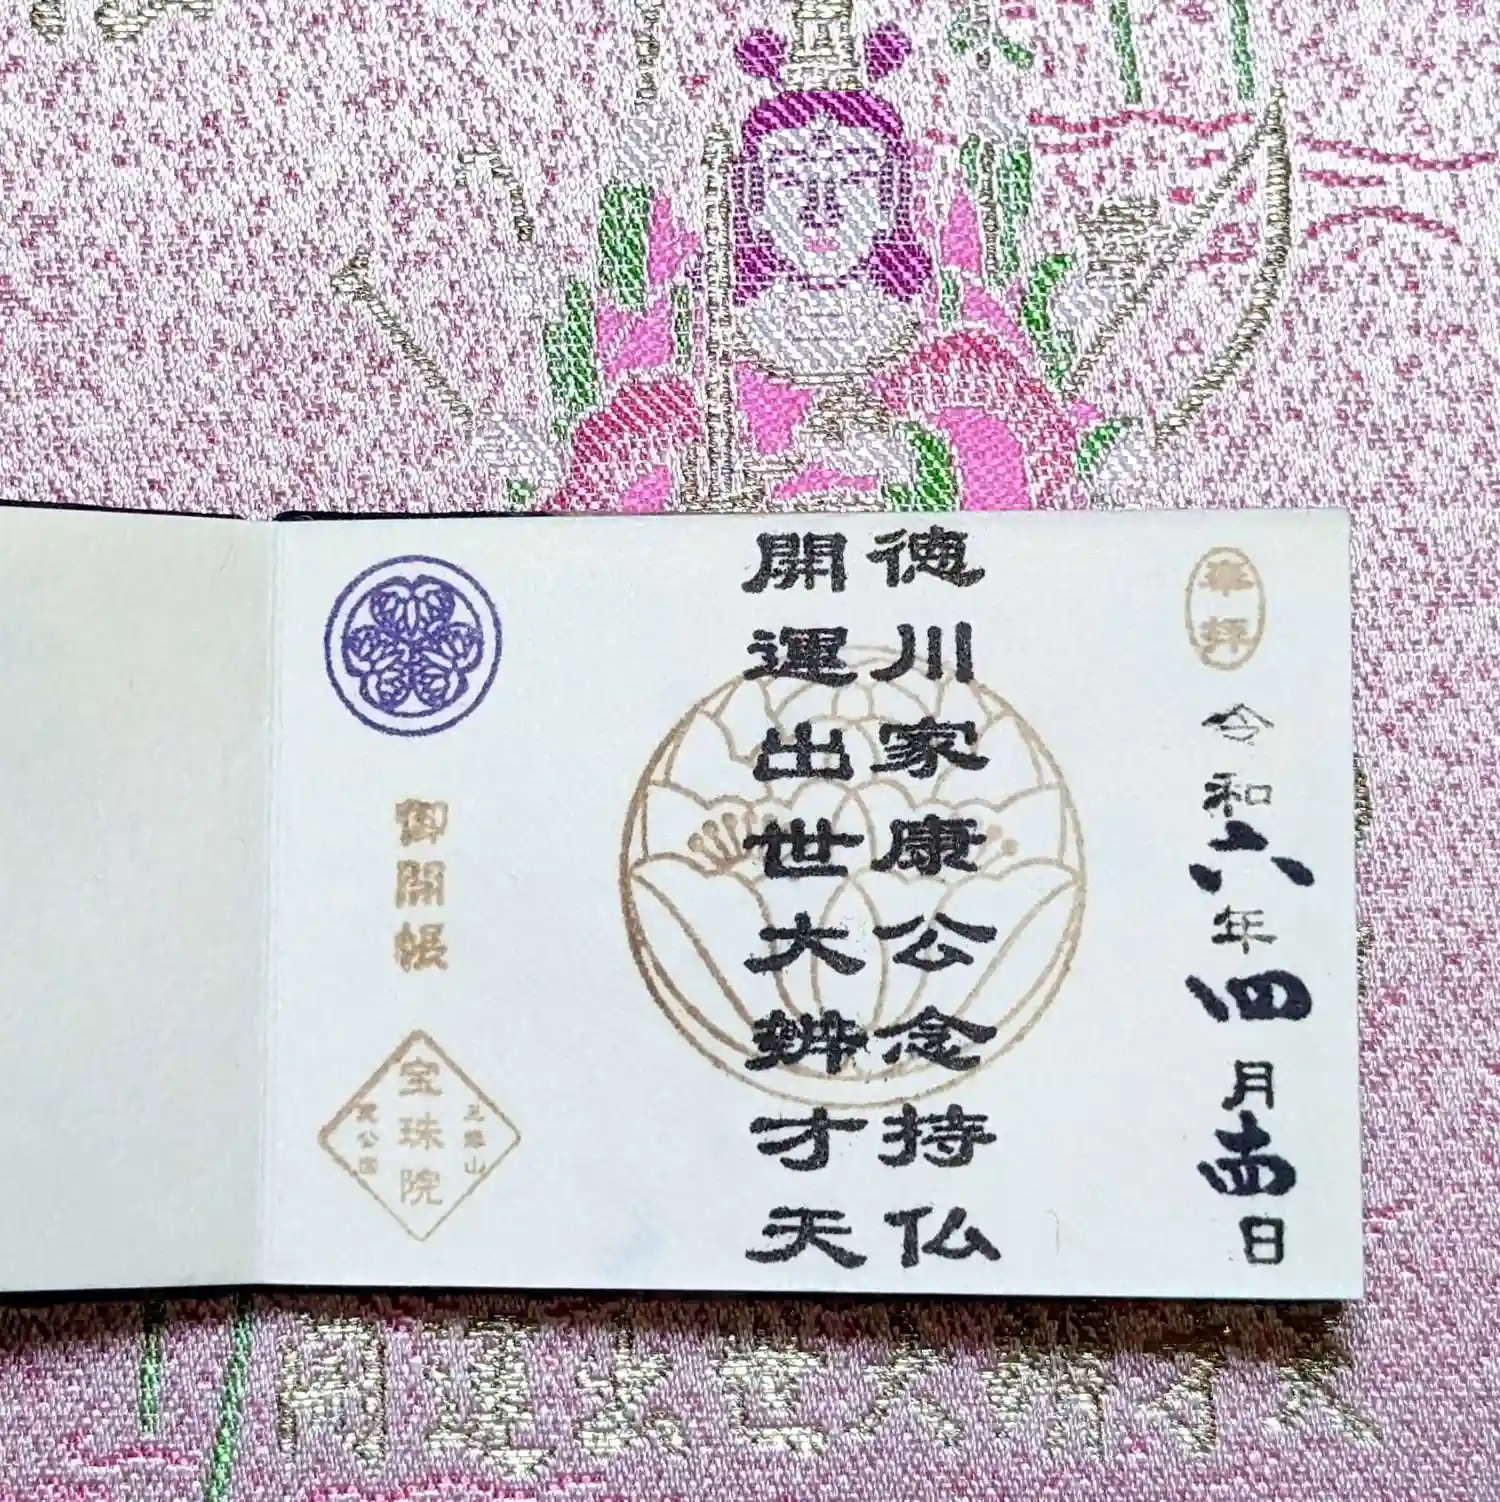 奉拝
令和六年四月十四日
徳川家康公念持仏
開運出世大辨才天
御開帳
三縁山
宝珠院
芝公園
開運出世大辨才天